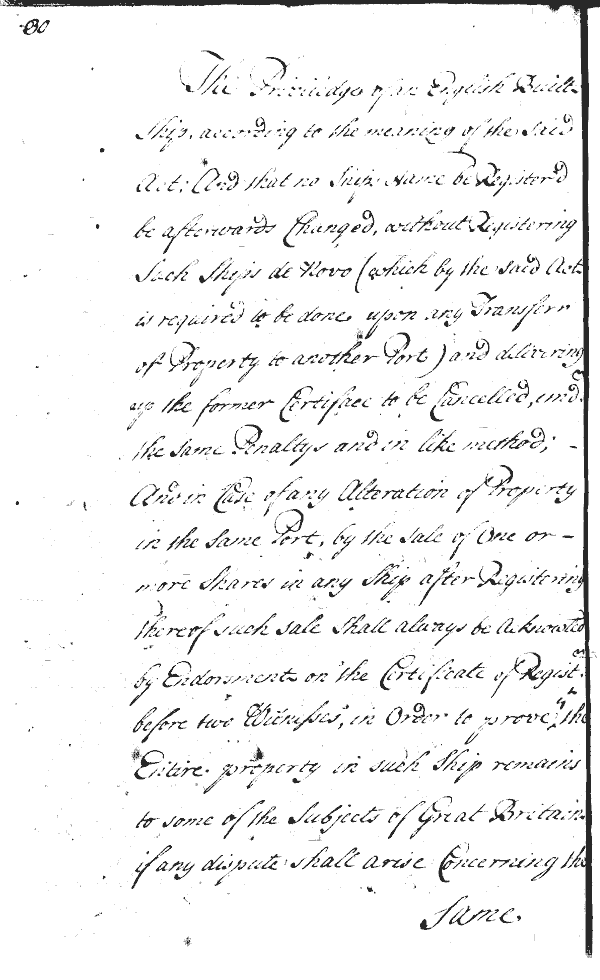 80
The Priviledge of an English Built
Ship, according to the meaning of the said
Act; And that no Ships Name be Register'd
be afterwards Changed, without Registering
Such Ship de Novo (which by the said Act
is required to be done upon any Transferr
of Property to another Port) and delivering
up the former Certificate to be Cancelled, und.r
the same Penaltys and in like method; -
And in Case of any Alteration of Property
in the same Port, by the sale of One or -
more Shares in any Ship after Registering
thereof such sale shall always be Acknowled
by Endorsment on the Certificate of Regist.r
before two Witnesses, in Order to prove yt the
Entire property in such Ship remains
to some of the Subjects of Great Britain
if any dispute shall arise Concerning the
Same.